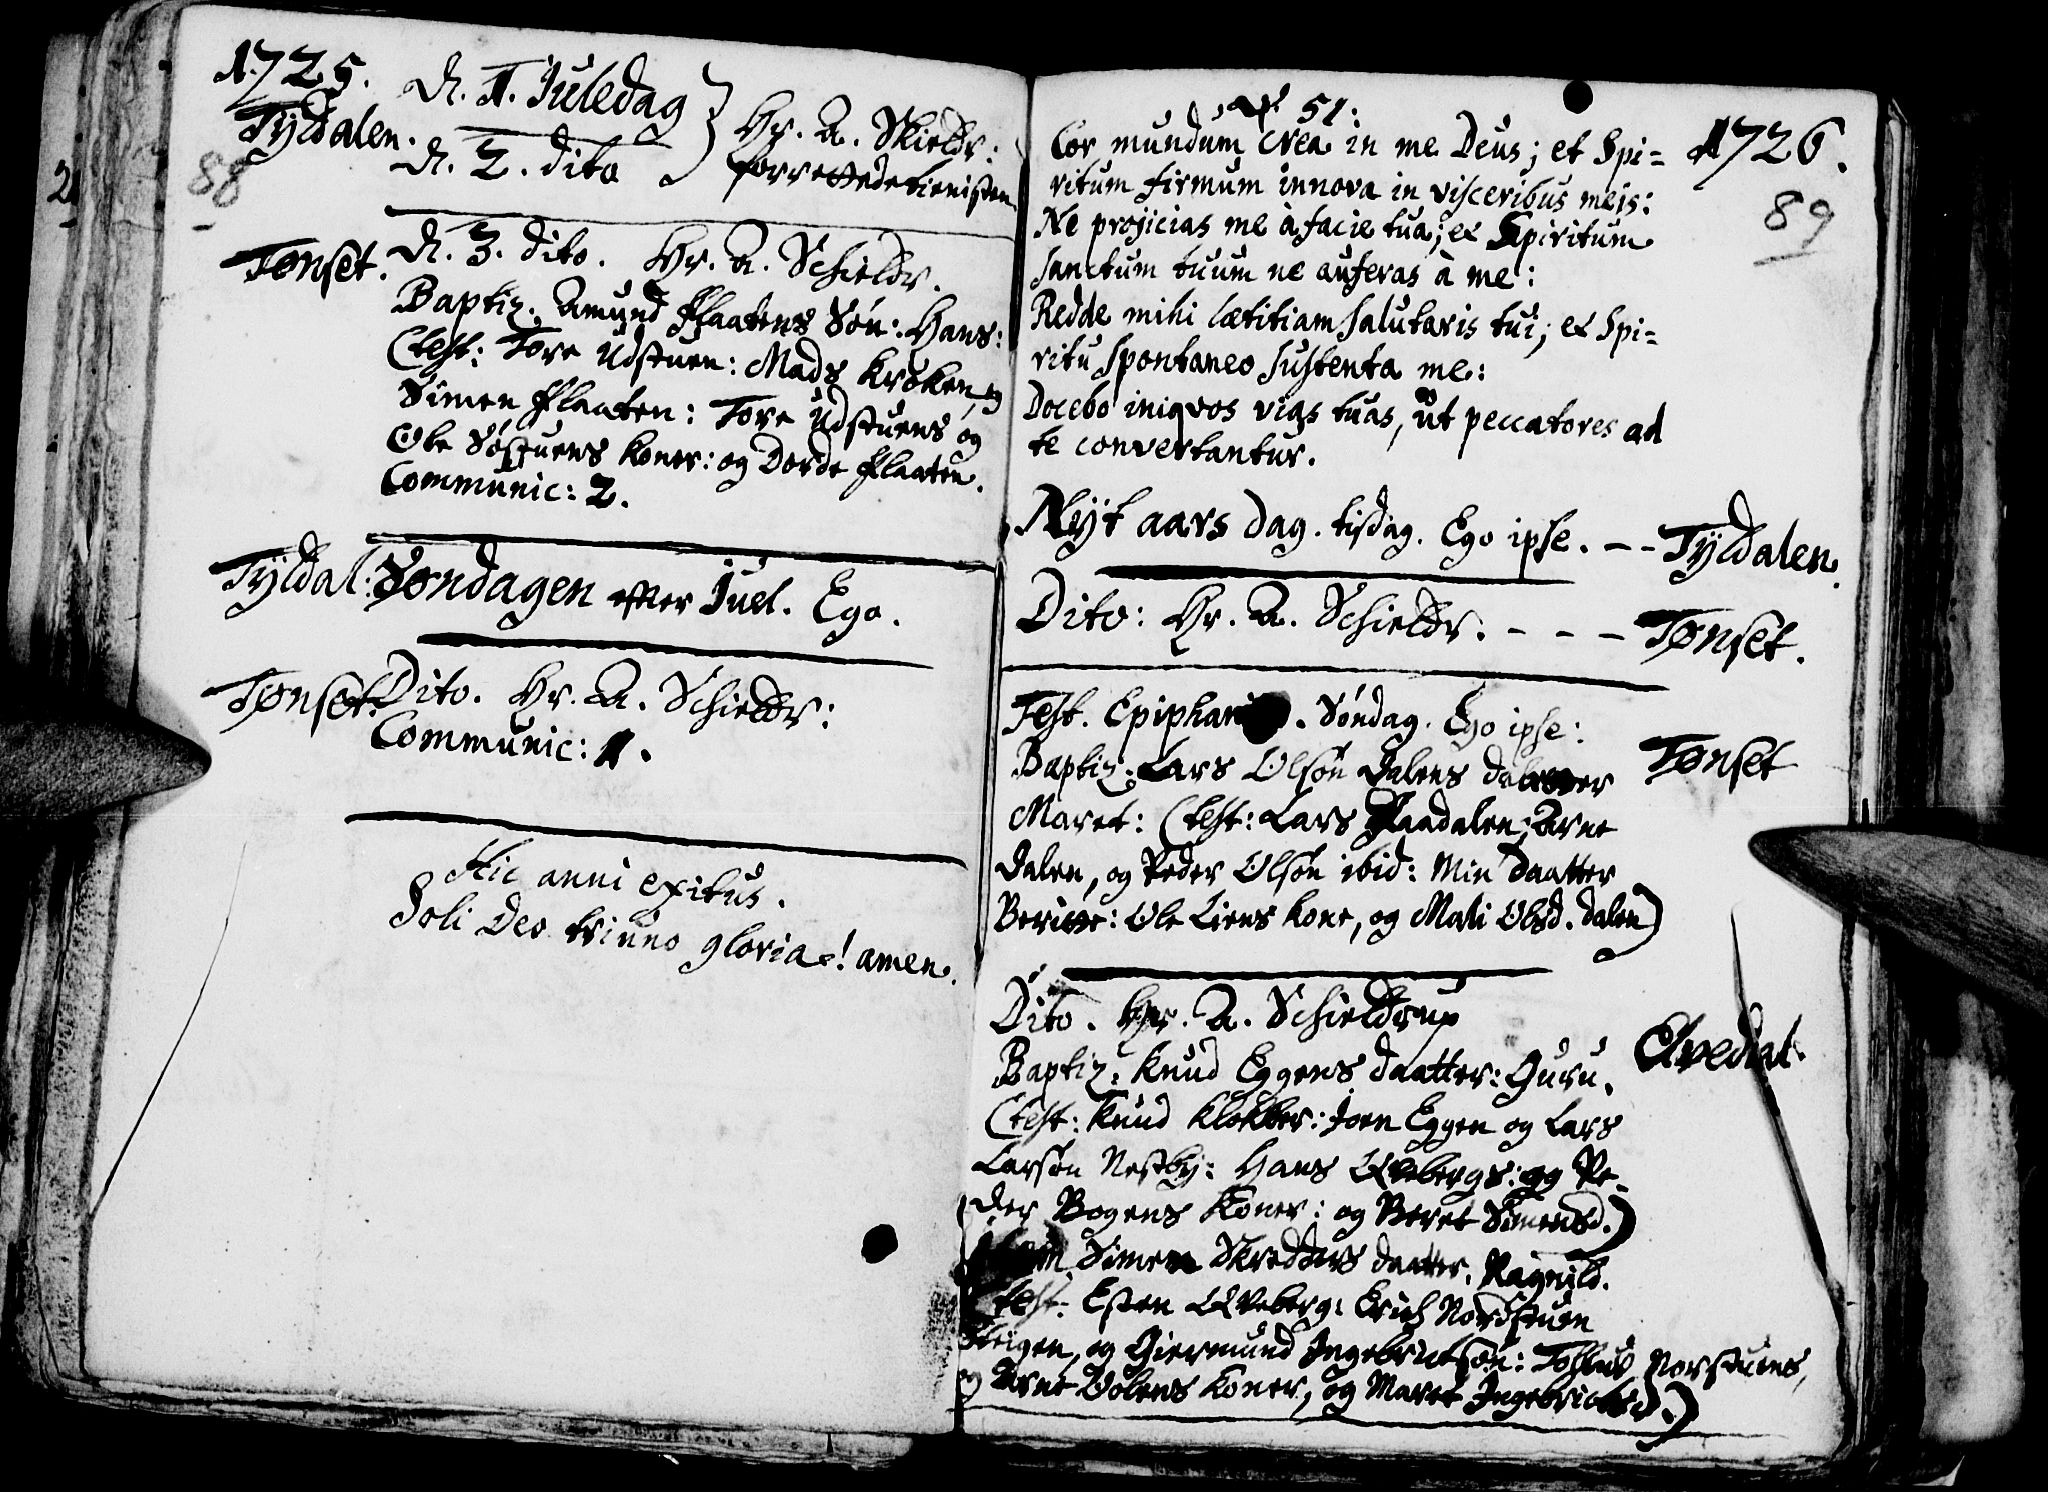 1725.
D. 1. Juledag
Tyldalen.
D. 2. dito
Hr. A. Skieldr:
forrettede tienisten.
88
D. 3. dito. Hr. A. Schieldr.
Tønset.
Baptiz. Amund Flaatens Søn: Hans:
(test: Tore Udstuen: Mads Kroken, og
Simen Flaaten: Tore Udstuens og
Ole Søstuens koner: og Dorde Flaaten.
Communic: 2.
Tyldal: Søndagen efter Juel. Ego.
Tønset. Dito. Hr. A. Schieldr:
Communic: 1.
Hic anni exitus.
Soli Deo triuno gloria! amen.
ψ. 51:
1726.
89
Cor mundum crea in me Deus; et Spi=
ritum firmum innova in visceribus mejs:
Ne projicias me à facie tua; et Spiritum
sanctum tuum ne auferas à me:
Redde mihi lætitiam salutaris tui; et Spi=
ritu spontaneo sustenta me:
Docebo iniqvos vias tuas, ut peccatores ad
te convertantur.
Nyt aars dag. tisdag. Ego ipse. -- Tyldalen.
Dito: Hr. A. Schieldr. - - - Tønset.
Fest. Epiphan . Søndag. Ego ipse:
Tønset
Baptiz: Lars Olsøn Dalens daatter
Maret: (test: Lars Aadalen; Arne
Dalen, og Peder Olsøn ibid: Min Daatter
Beritte: Ole Liens kone, og Mali Olsd. Dalen)
Dito. Hr. A. Schieldrup
Elvedal.
Baptiz: Knud Eggens daatter: Guru.
(test: Knud Klokker: Joen Eggen og Lars
Larsøn Nestby: Hans Qvebergs: og Pe-
der Bogens Koner: og Beret Simensd.)
Simen Skredders daatter. Ragnild.
(test: Esten Qveberg: Erich Nordstuen
Steigen, og Giermund Ingebrictsøn: Norstuens,
og Arne Volens koner, og Maret Ingebrictsd.)